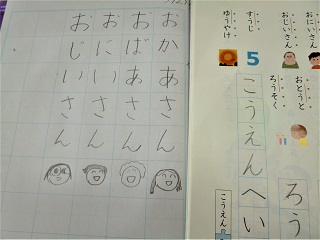 おかあさん
おばあさん
おにいさん
おじいさん
おにいさん
おじいさん
すうじ
ゆうやけ
5
おとうと
ろうそく
ろう
こうえんへい
こうえん